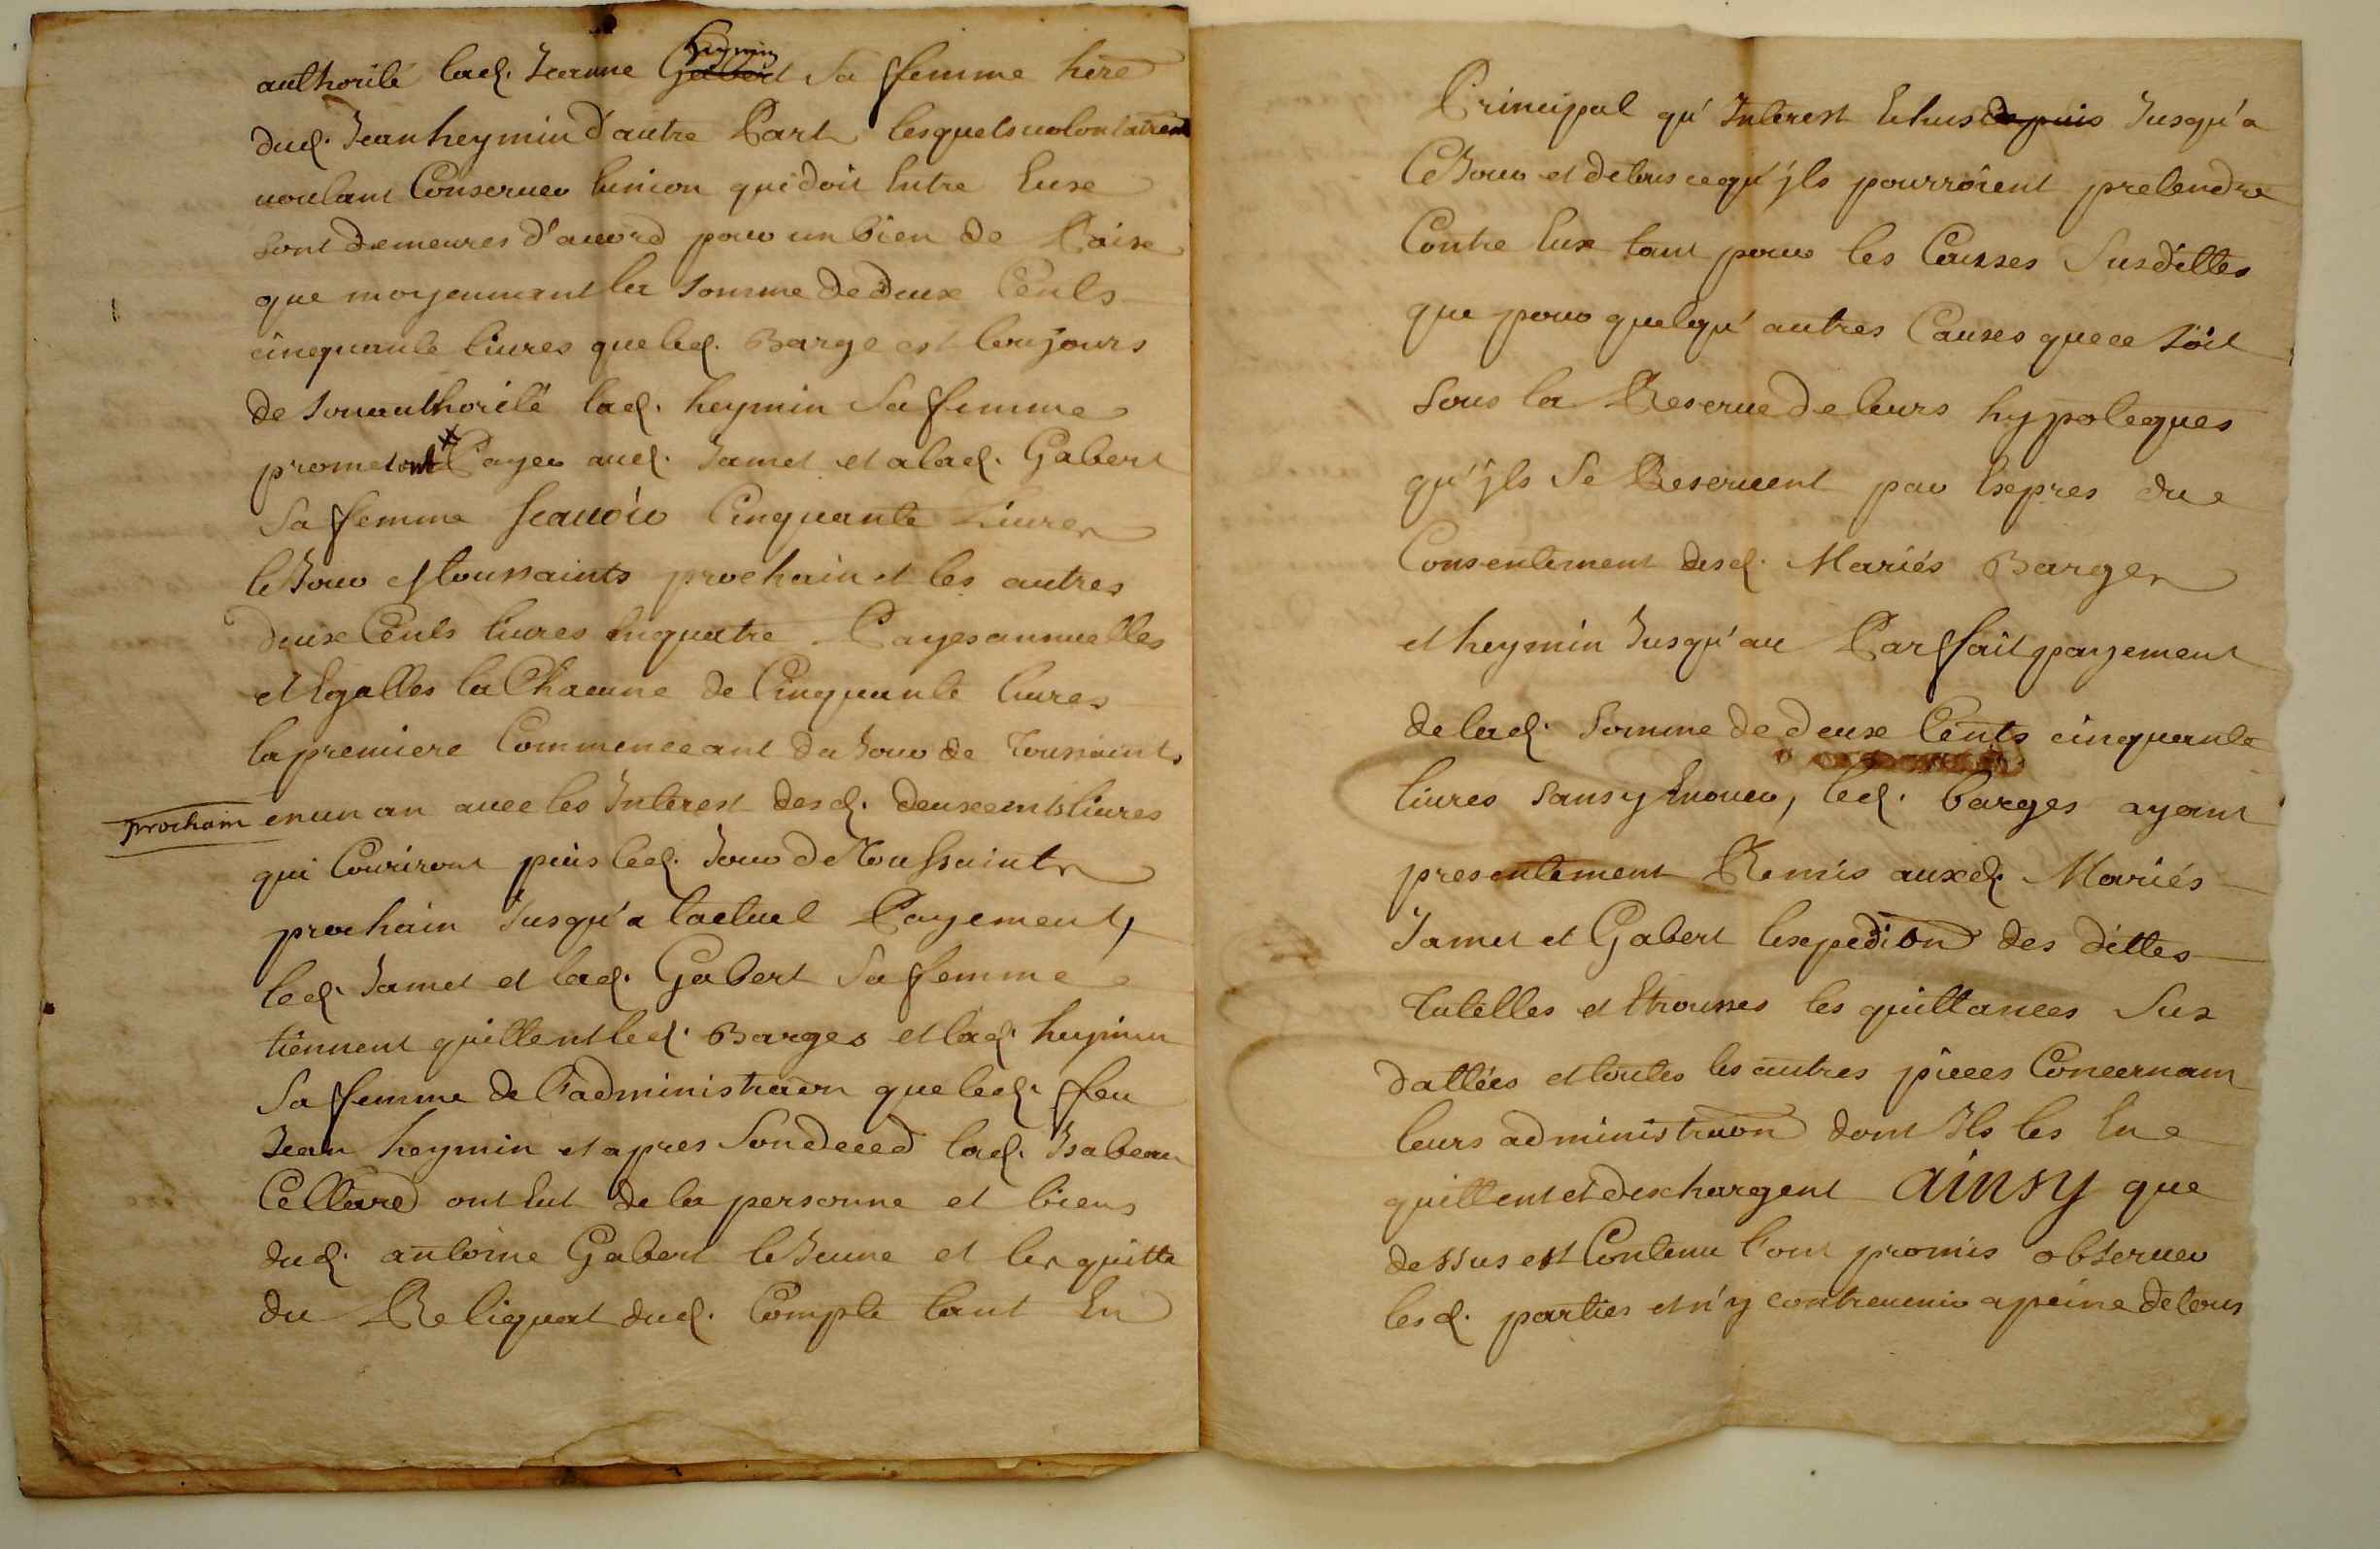 authorité lad. Jeanne Gabert heymin sa ffemme here
dud. Jean heymin d'autre Part lesquels volontairemt
voulant Conseruer lunion qui doit Entre Eux
sont demeures d'accord pour un bien de Paix
que moyennant la somme de deux Cents
cinquante liures que led. Barge et toujours
de son authorité lad. heymin sa ffemme
prometont Payer aud. Jamet et a lad. Gabert
sa ffemme scauoir Cinquante Liures
le Jour et toussaints prochain et les autres
deux Cents liures en quatre Payes annuelles
et Egalles la Chacune de Cinquante liures
la premiere Commenceant du Jour de Toussaints
prochain en un an auec les Interest desd. deux cents liures
qui Couriront puis led. Jour de Toussaints
prochain Jusqu'a lactuel Payement,
led. Jamet et lad. Gabert sa ffemme
tiennent quittent led. Barges et lad. heymin
sa ffemme de l'administraon que led. ffeu
Jean heymin et apres son deced lad. Isabeau
Cellard ont Eut de la personne et biens
dud. antoine Gabert le Jeune et les quitte
du Reliquat dud. Compte tant En
Principal qu'Interest Echus depuis Jusqu'a
Ce Jour et de tous ce qu'jls pourroient pretendre
Contre Eux tant pour les Causses Susdittes
que pour quelqu'autres Causes que ce soit
sous la Reserue de leurs hypoteques
qu'jls se Reseruent par Expres du
Consentement desd. Mariés Barges
et heymin Jusqu'au Parffait payement
de lad. somme de deux Cents cinquante
liures sans y Inouer, led. barges ayant
presentement Remis auxd. Mariés
Jamet et Gabert lexpedition des dittes
Tutelles et Etrousses les quittances Sus
dattées et toutes les autres pieces Concernant
leurs administraon dont Ils les En
quittent et deschargent ainsy que
dessus est Contenu l'ont promis obseruer
lesd. parties et n'y contreuenir a peine de tous